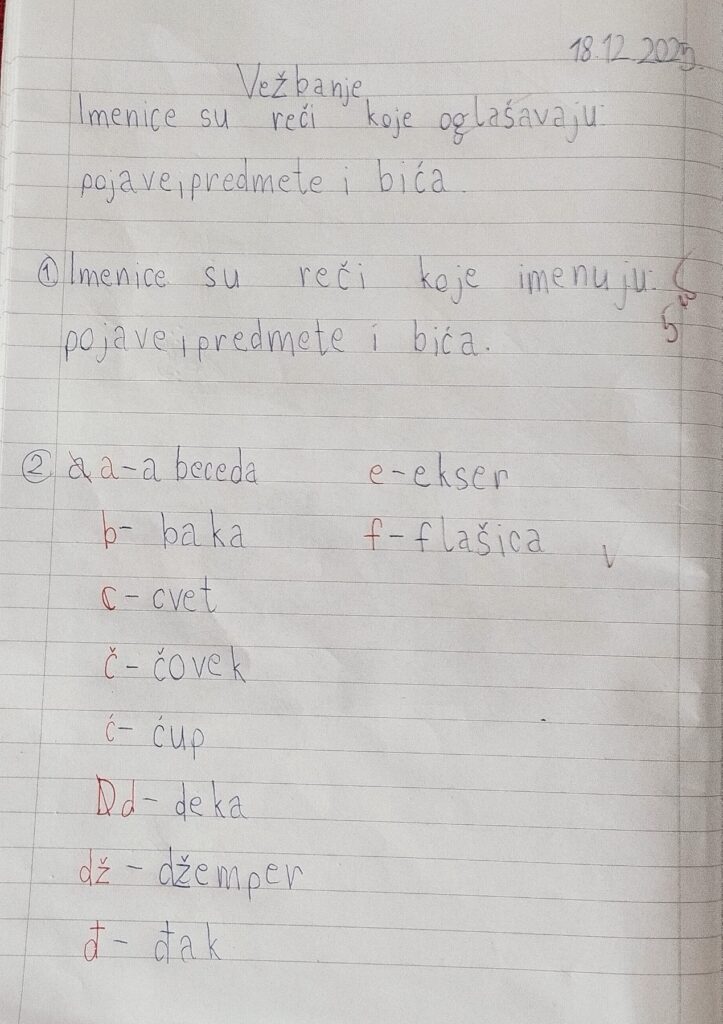 18.12.2025.
Vežbanje
Imenice su reči koje oglašavaju:
pojave, predmete i bića.
① Imenice su reči koje imenuju:
pojave, predmete i bića.
5
② a a - abeceda
e - ekser
b - baka
f - flašica
c - cvet
č - čovek
ć - ćup
Dd - deka
dž - džemper
đ - đak